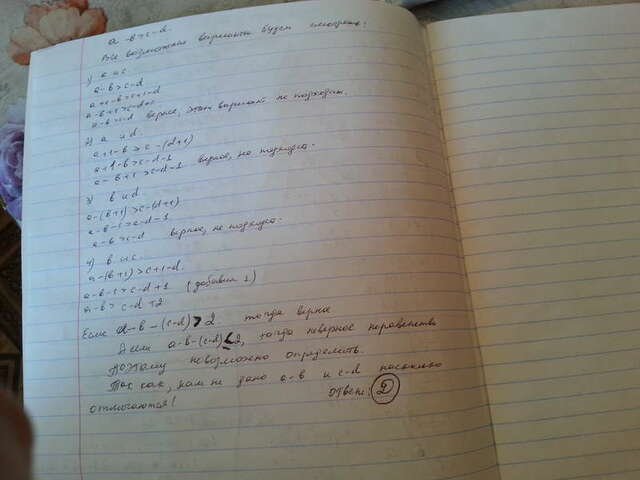 a-b>c-d.
Все возможные варианты будем смотреть:
1) a и c
a-b>c-d
a+1-b>c+1-d
a-b+1>c-d+1
a-b>c-d верное, этот вариант не подходит.
2) a и d.
a+1-b>c-(d+1)
a+1-b>c-d-1
a-b+1>c-d-1 верное, не подходит.
3) b и d.
a-(b+1)>c-(d+1)
a-b-1>c-d-1
a-b>c-d верное, не подходит.
4) b и c.
a-(b+1)>c+1-d.
a-b-1>c-d+1 (добавим 1)
a-b>c-d+2
Если a-b-(c-d)>2 тогда верно
А если a-b-(c-d)<2, тогда неверное неравенство
Поэтому невозможно определить.
Так как, нам не дано a-b и c-d насколько
отличаются!
Ответ: 2